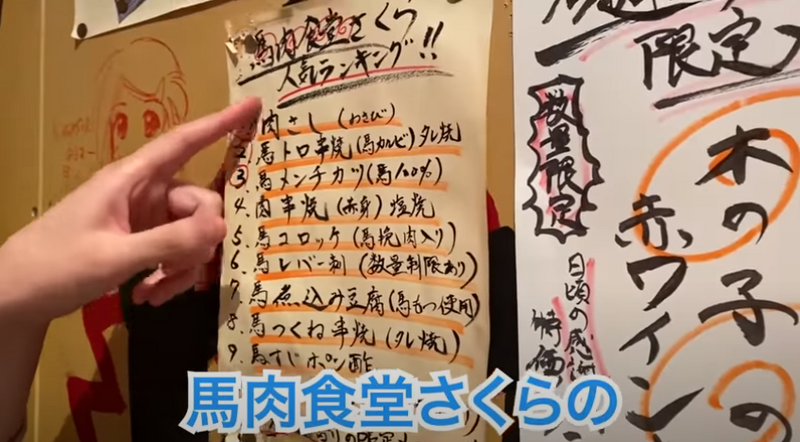 馬肉食堂さくら
人気ランキング!!
肉さし(わさび)
2. 馬トロ串焼(馬カルビ)タレ焼
3. 馬メンチカツ(馬100%)
4. 肉串焼(赤身)塩焼
5. 馬コロッケ(馬挽肉入り)
6. 馬レバー刺(数量制限あり)
7. 馬煮込み豆腐(馬もつ使用)
8. 馬つくね串焼(タレ焼)
9. 馬すじポン酢
限定
数量限定
木の子の
赤ワイン
日頃の感謝
特価
馬肉食堂さくらの